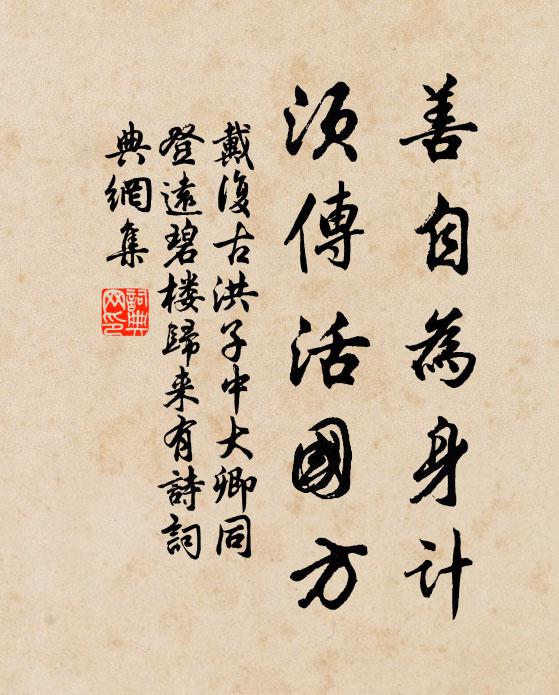 善自為身計
須傳活國方
戴復古洪子中大卿同
登遠碧楼歸来有詩詞
典網集
詞典
网印